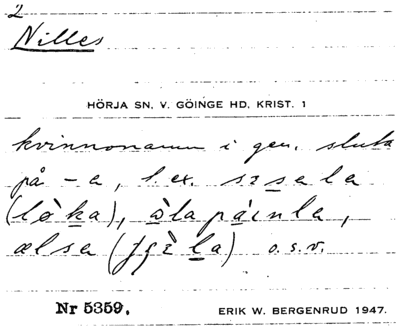 2
Nilles
HÖRJA SN, V. GÖINGE HD, KRIST. 1
kvinnonamn i gen. sluta
på -a, t.ex. sɛsela
(løka), òlapàinla,
ælsa (jgèla) o.s.v.
Nr 5359.
ERIK W. BERGENRUD 1947.